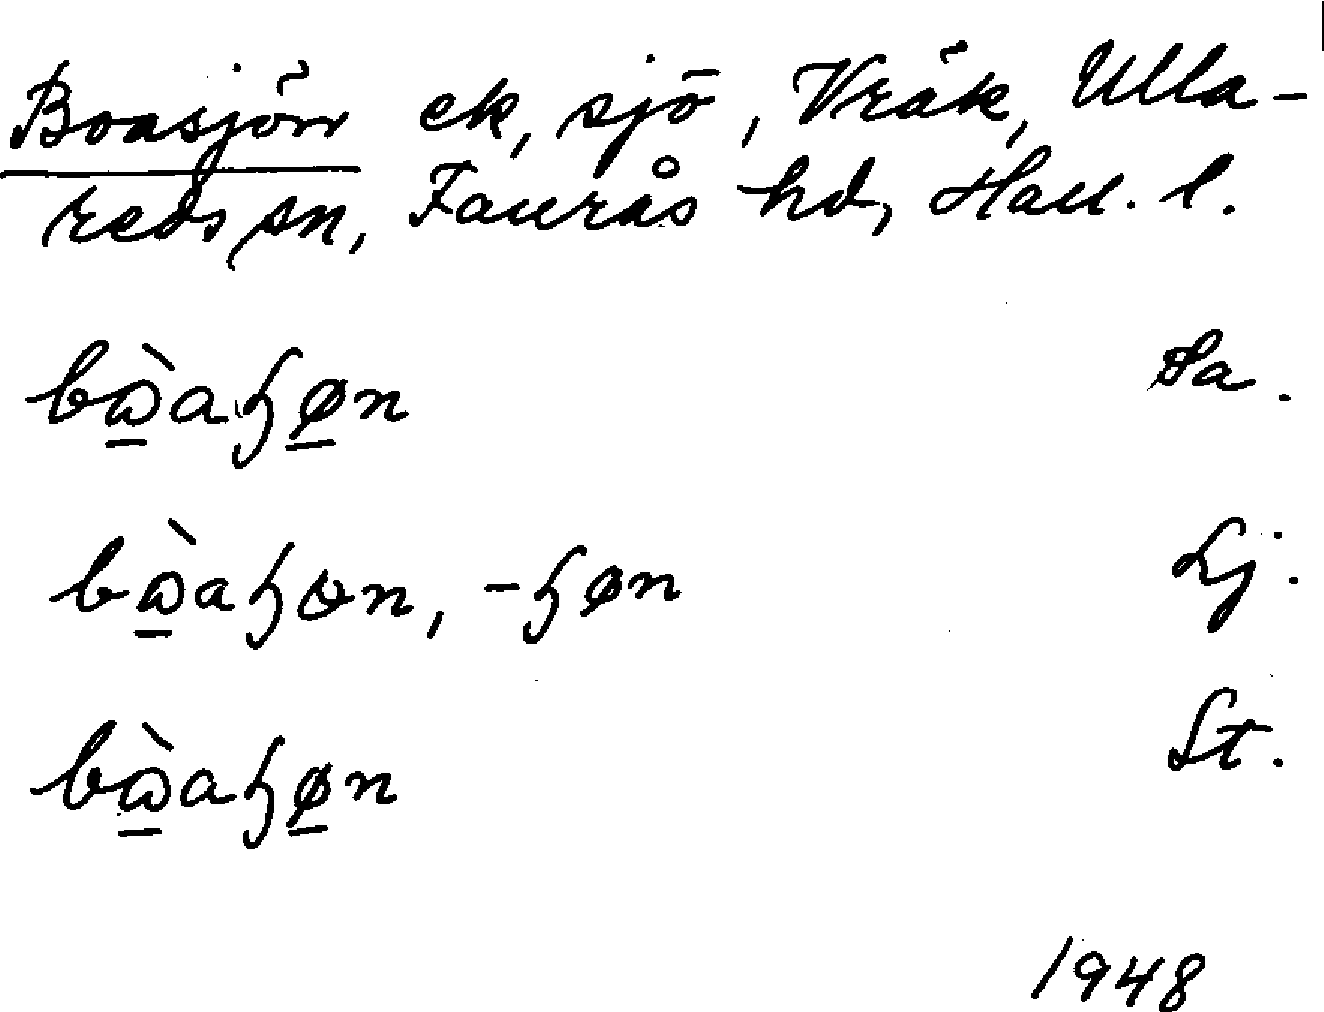 Boasjön ek, sjö, Vräk, Ulla-
reds sn, Faurås hd, Hall. l.
bɷ̠̀aɧø̠n Sa.
bɷ̠̀aɧɵn, -ɧøn Lj.
bɷ̠̀aɧø̠n St.
1948